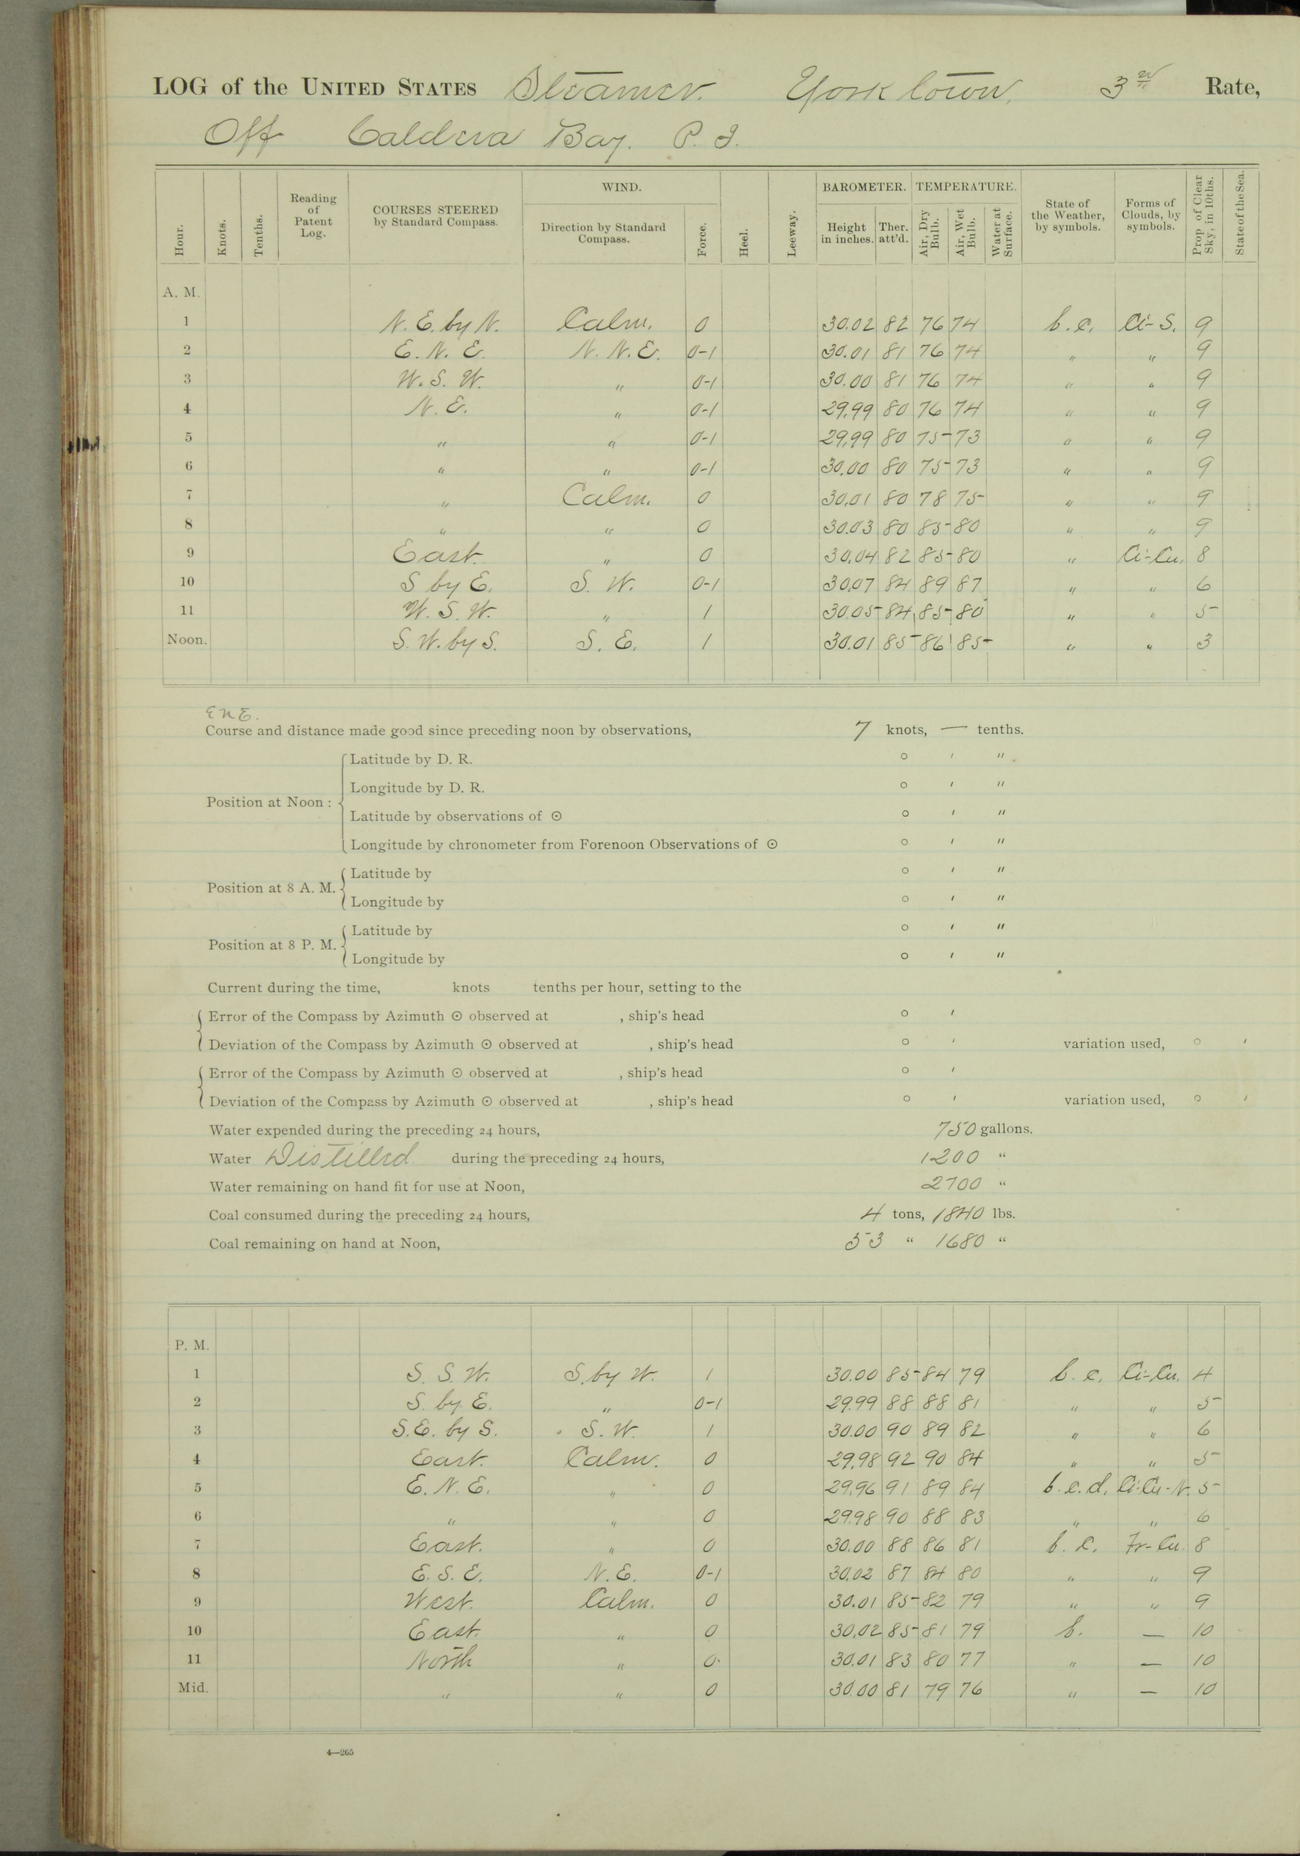 LOG of the UNITED STATES Steamer. Yorktown, 3rd Rate,
Off Caldera Bay. P. I.
Hour. Knots. Tenths. Reading of Patent Log. COURSES STEERED by Standard Compass. WIND. Direction by Standard Compass. Force. Heel. Leeway. BAROMETER. Height in inches. Ther. att'd. TEMPERATURE. Air, Dry Bulb. Air, Wet Bulb. Water at Surface. State of the Weather, by symbols. Forms of Clouds, by symbols. Prop. of Clear Sky, in 10ths. State of the Sea.
A. M.
1 N. E. by N. Calm. 0 30.02 82 76 74 b.c. Ci-S. 9
2 E. N. E. N. N. E. 0-1 30.01 81 76 74 " " 9
3 W. S. W. " 0-1 30.00 81 76 74 " " 9
4 N. E. " 0-1 29.99 80 76 74 " " 9
5 " " 0-1 29.99 80 75 73 " " 9
6 " " 0-1 30.00 80 75 73 " " 9
7 " Calm. 0 30.01 80 78 75 " " 9
8 " " 0 30.03 80 85 80 " " 9
9 East. " 0 30.04 82 85 80 " Ci-Cu. 8
10 S by E. S. W. 0-1 30.07 84 89 87 " " 6
11 W. S. W. " 1 30.05 84 85 80 " " 5
Noon. S. W. by S. S. E. 1 30.01 85 86 85 " " 3
ENE.
Course and distance made good since preceding noon by observations, 7 knots, — tenths.
Latitude by D. R. ° ′ ″
Longitude by D. R. ° ′ ″
Position at Noon :
Latitude by observations of ⊙ ° ′ ″
Longitude by chronometer from Forenoon Observations of ⊙ ° ′ ″
Position at 8 A. M. Latitude by ° ′ ″
Longitude by ° ′ ″
Position at 8 P. M. Latitude by ° ′ ″
Longitude by ° ′ ″
Current during the time, knots tenths per hour, setting to the
Error of the Compass by Azimuth ⊙ observed at , ship's head ° ′
Deviation of the Compass by Azimuth ⊙ observed at , ship's head ° ′ variation used, ° ′
Error of the Compass by Azimuth ⊙ observed at , ship's head ° ′
Deviation of the Compass by Azimuth ⊙ observed at , ship's head ° ′ variation used, ° ′
Water expended during the preceding 24 hours, 750 gallons.
Water Distilled during the preceding 24 hours, 1200 "
Water remaining on hand fit for use at Noon, 2700 "
Coal consumed during the preceding 24 hours, 4 tons, 1840 lbs.
Coal remaining on hand at Noon, 53 " 1680 "
P. M.
1 S. S. W. S. by W. 1 30.00 85 84 79 b.c. Ci-Cu. 4
2 S. by E. " 0-1 29.99 88 88 81 " " 5
3 S.E. by S. S. W. 1 30.00 90 89 82 " " 6
4 East. Calm. 0 29.98 92 90 84 " " 5
5 E. N. E. " 0 29.96 91 89 84 b.c.d. Ci-Cu-N. 5
6 " " 0 29.98 90 88 83 " " 6
7 East. " 0 30.00 88 86 81 b.c. Fr-Cu. 8
8 E. S. E. N. E. 0-1 30.02 87 84 80 " " 9
9 West. Calm. 0 30.01 85 82 79 " " 9
10 East. " 0 30.02 85 81 79 b. — 10
11 North " 0 30.01 83 80 77 " — 10
Mid. " " 0 30.00 81 79 76 " — 10
4—265